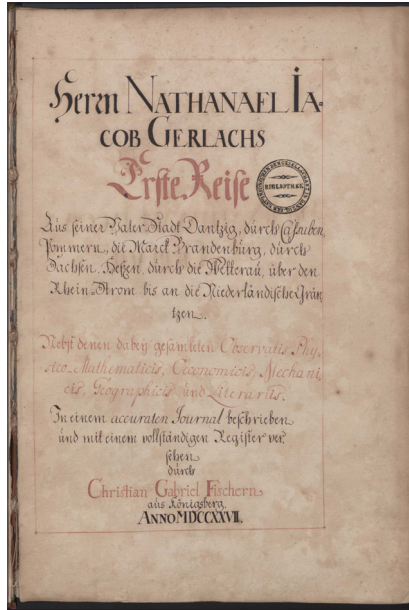 Herrn NATHANAEL IA-
COB GERLACHS
Erste Reise
BIBLIOTHEK
Aus seiner Vater Stadt Dantzig, durch Cassuben
Pommern, die Marck Brandenburg, durch
Sachsen, Heßen, durch die Wetterau, über den
Rhein-Strom bis an die Niederländische Grän
tzen.
Nebst denen dabey gesamleten Observatis Phy-
sico-Mathematicis, Oeconomicis, Mechani
cis, Geographicis und Literariis.
In einem accuraten Journal beschrieben
und mit einem vollständigen Register ver
sehen
durch
Christian Gabriel Fischern
aus Königsberg.
ANNO MDCCXXVII.